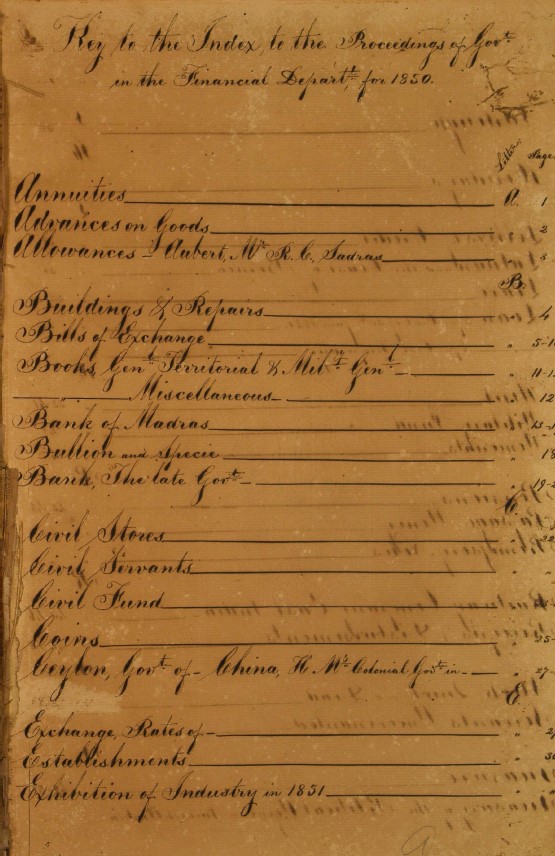 Key to the Index, to the Proceedings of Govt.
in the Financial Departt. for 1850.
Letter Page
Annuities A. 1
Advances on Goods " 2
Allowances - Aubert, Mr. R. C. Sadras
B.
Buildings & Repairs " 4
Bills of Exchange "
Books, Genl. Territorial & Mily. Genl. "
" Miscellaneous " 12
Bank of Madras "
Bullion and Specie " 18
Bank, The late Govt. "
C.
Civil Stores "
Civil Servants "
Civil Fund "
Coins "
Ceylon, Govt. of - China, H. M's. Colonial Govt. in "
E.
Exchange, Rates of "
Establishments "
Exhibition of Industry in 1851 "